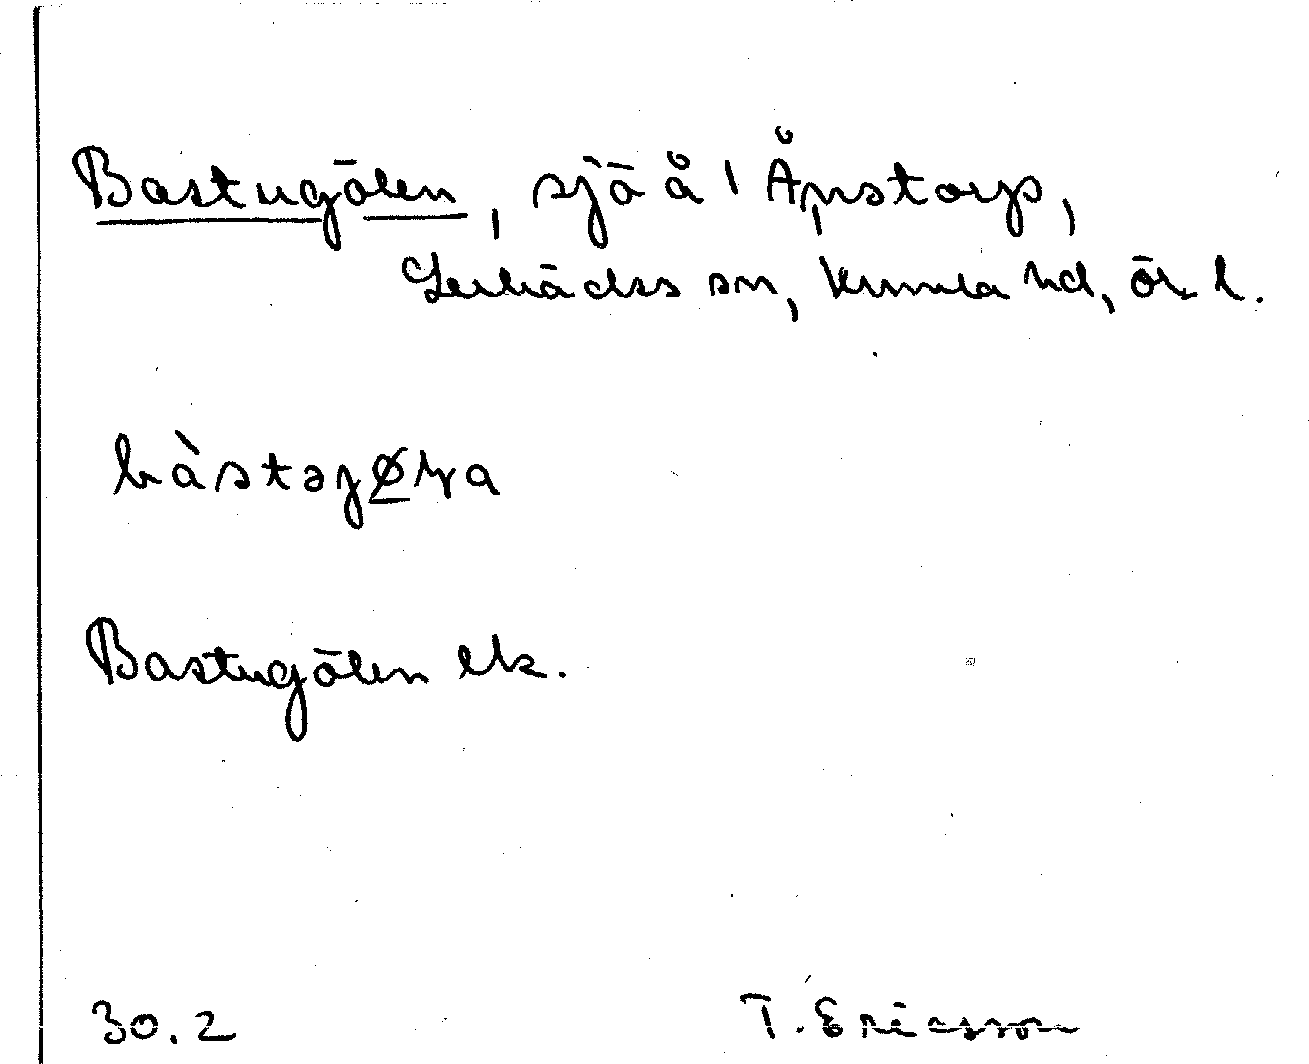 Bastugölen, sjö å Åpstorp,
Lerbäcks sn, Kumla hd, Ör. l.
Bastugölen ek.
30.2 T. Ericsson